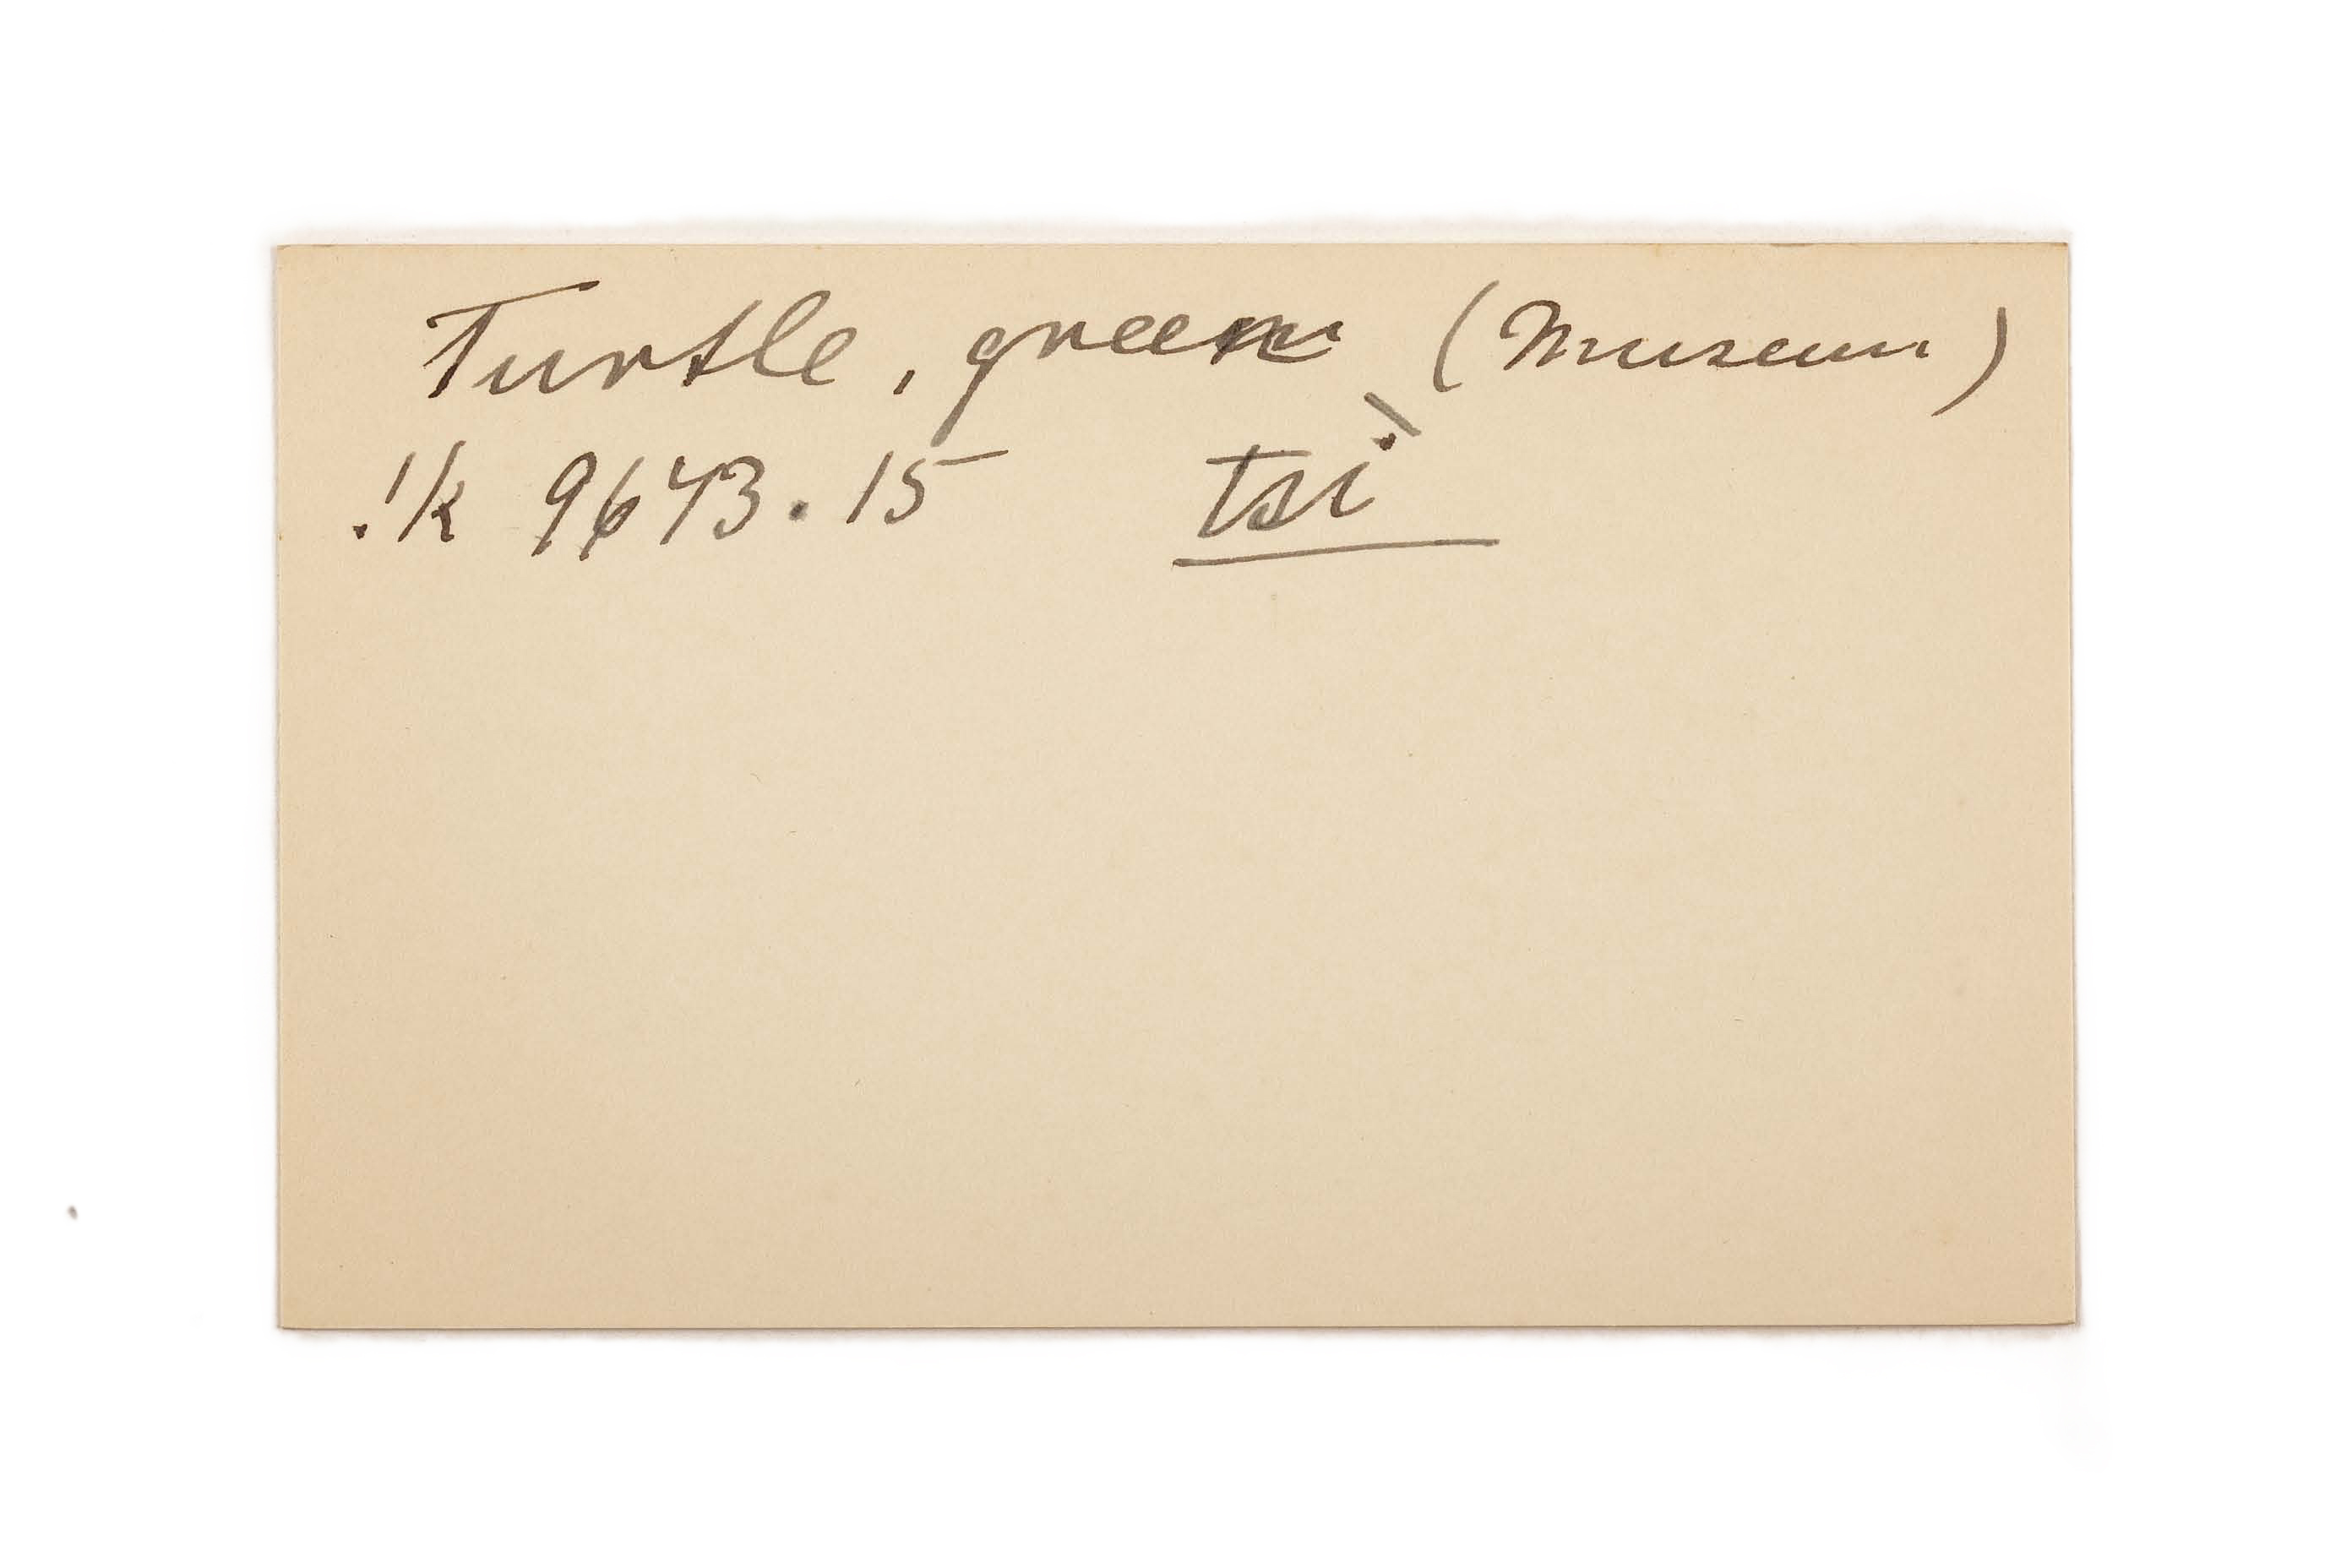 Turtle, green (Museum)
!k 9643.15 tsì